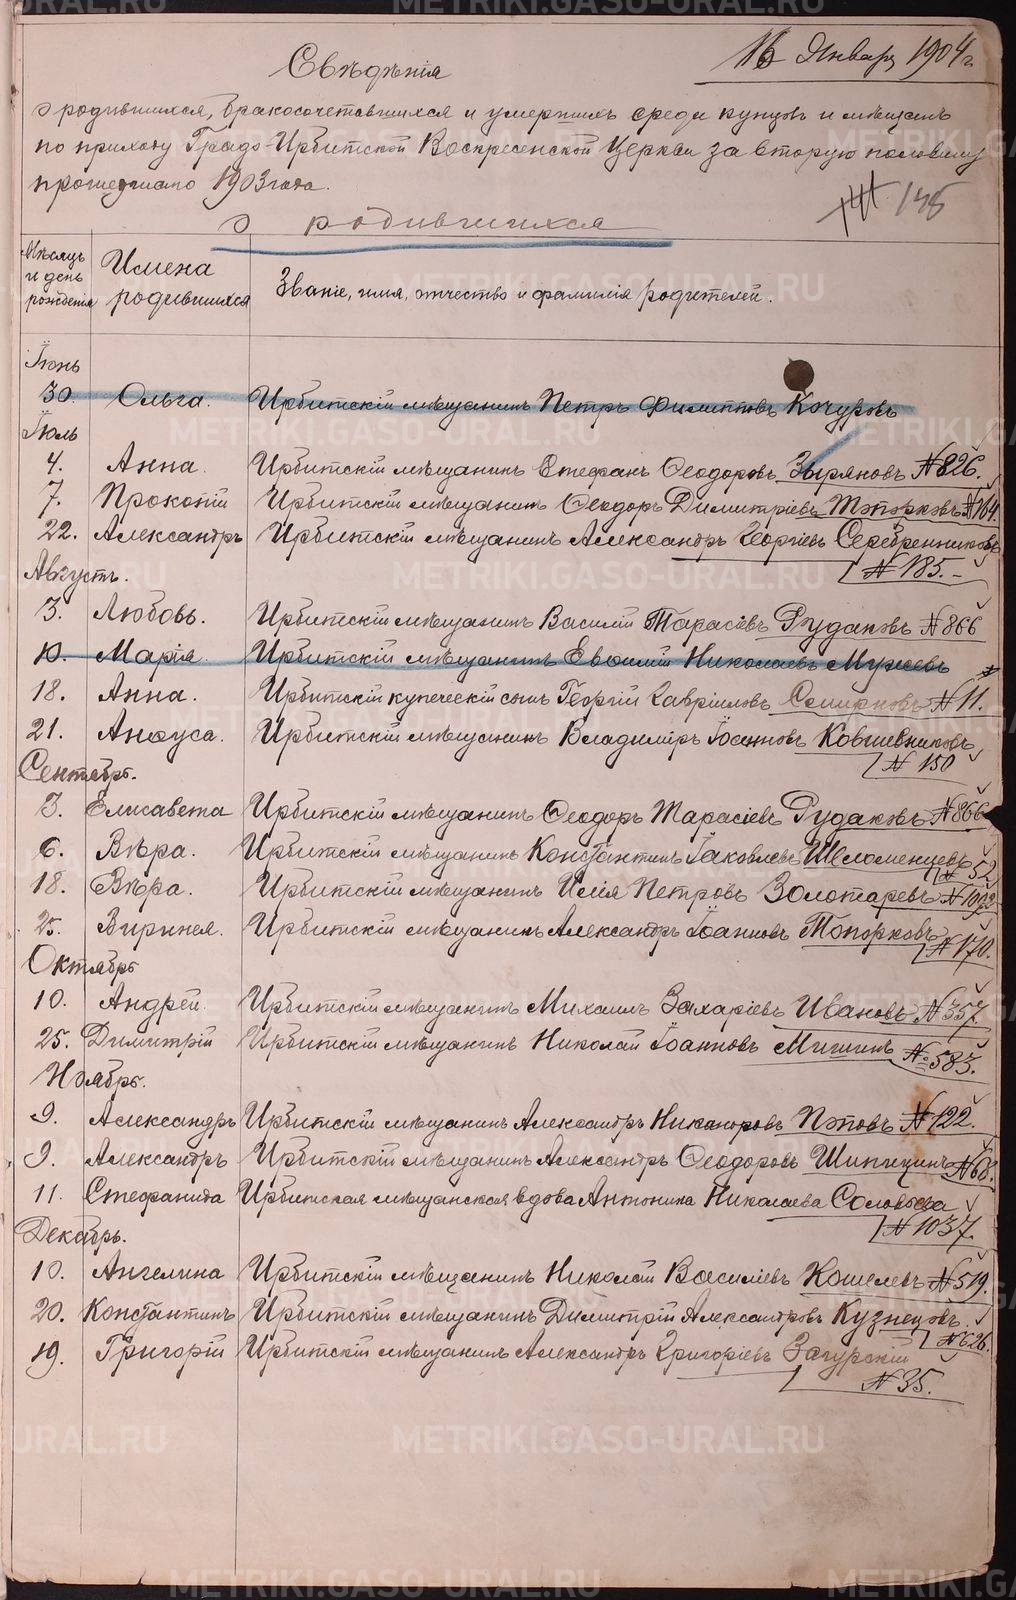 16 Январ 1904 г
Свѣдѣнія
о родившихся, бракосочетавшихся и умершихъ среди купцовъ и мѣщанъ
по приходу Градо-Ирбитской Воскресенской Церкви за вторую половину
прошедшаго 1903 года.
148
о родившихся
Мѣсяцъ и день рожденія Имена родившихся Званіе, имя, отчество и фамилія родителей.
Іюнь
30. Ольга. Ирбитскій мѣщанинъ Петръ Филипповъ Кочуровъ
Іюль
4. Анна. Ирбитскій мѣщанинъ Стефанъ Ѳеодоровъ Зыряновъ №826.
7. Прокопій Ирбитскій мѣщанинъ Ѳеодоръ Димитріевъ Топорковъ №164.
22. Александръ Ирбитскій мѣщанинъ Александръ Георгіевъ Серебренниковъ
№185.-
Августъ.
3. Любовь. Ирбитскій мѣщанинъ Василій Тарасіевъ Рудаковъ №866
10. Марія. Ирбитскій мѣщанинъ Николаевъ
18. Анна. Ирбитскій купеческій сынъ Георгій Гавріиловъ Смирновъ №11.
21. Анфуса. Ирбитскій мѣщанинъ Владиміръ Ковшевниковъ
№150
Сентябрь.
3. Елисавета Ирбитскій мѣщанинъ Ѳеодоръ Тарасіевъ Рудаковъ №866
6. Вѣра. Ирбитскій мѣщанинъ Константинъ Іаковлевъ Шеломенцевъ
№52
18. Вѣра. Ирбитскій мѣщанинъ Илія Петровъ Золотаревъ
25. Виринея. Ирбитскій мѣщанинъ Александръ Іоанновъ Топорковъ
№170.
Октябрь
10. Андрей. Ирбитскій мѣщанинъ Михаилъ Захаріевъ Ивановъ №357.
25. Димитрій Ирбитскій мѣщанинъ Николай Іоанновъ Мишинъ №583.
Ноябрь.
9. Александръ Ирбитскій мѣщанинъ Александръ Никаноровъ Поповъ №122.
9. Александръ Ирбитскій мѣщанинъ Александръ Ѳеодоровъ Шипицинъ №68.
11. Стефанида Ирбитская мѣщанская вдова Антонина Николаева Соловьева
№1037.
Декабрь.
10. Ангелина Ирбитскій мѣщанинъ Николай Василіевъ Кошелевъ №519.
20. Константинъ Ирбитскій мѣщанинъ Димитрій Александровъ Кузнецовъ.
№626.
19. Григорій Ирбитскій мѣщанинъ Александръ Григоріевъ Загурскій
№35.
METRIKI.GASO-URAL.RU